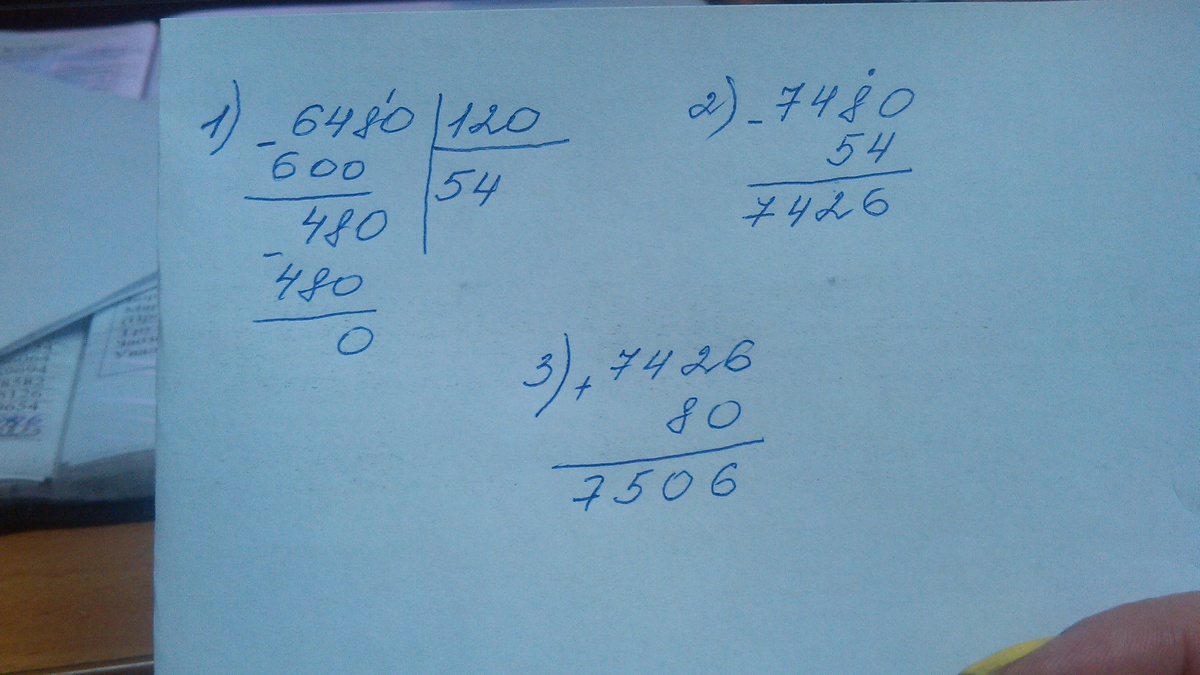 1) - 6480 | 120
600
54
480
- 480
0
2) - 7480
54
7426
3) + 7426
80
7506